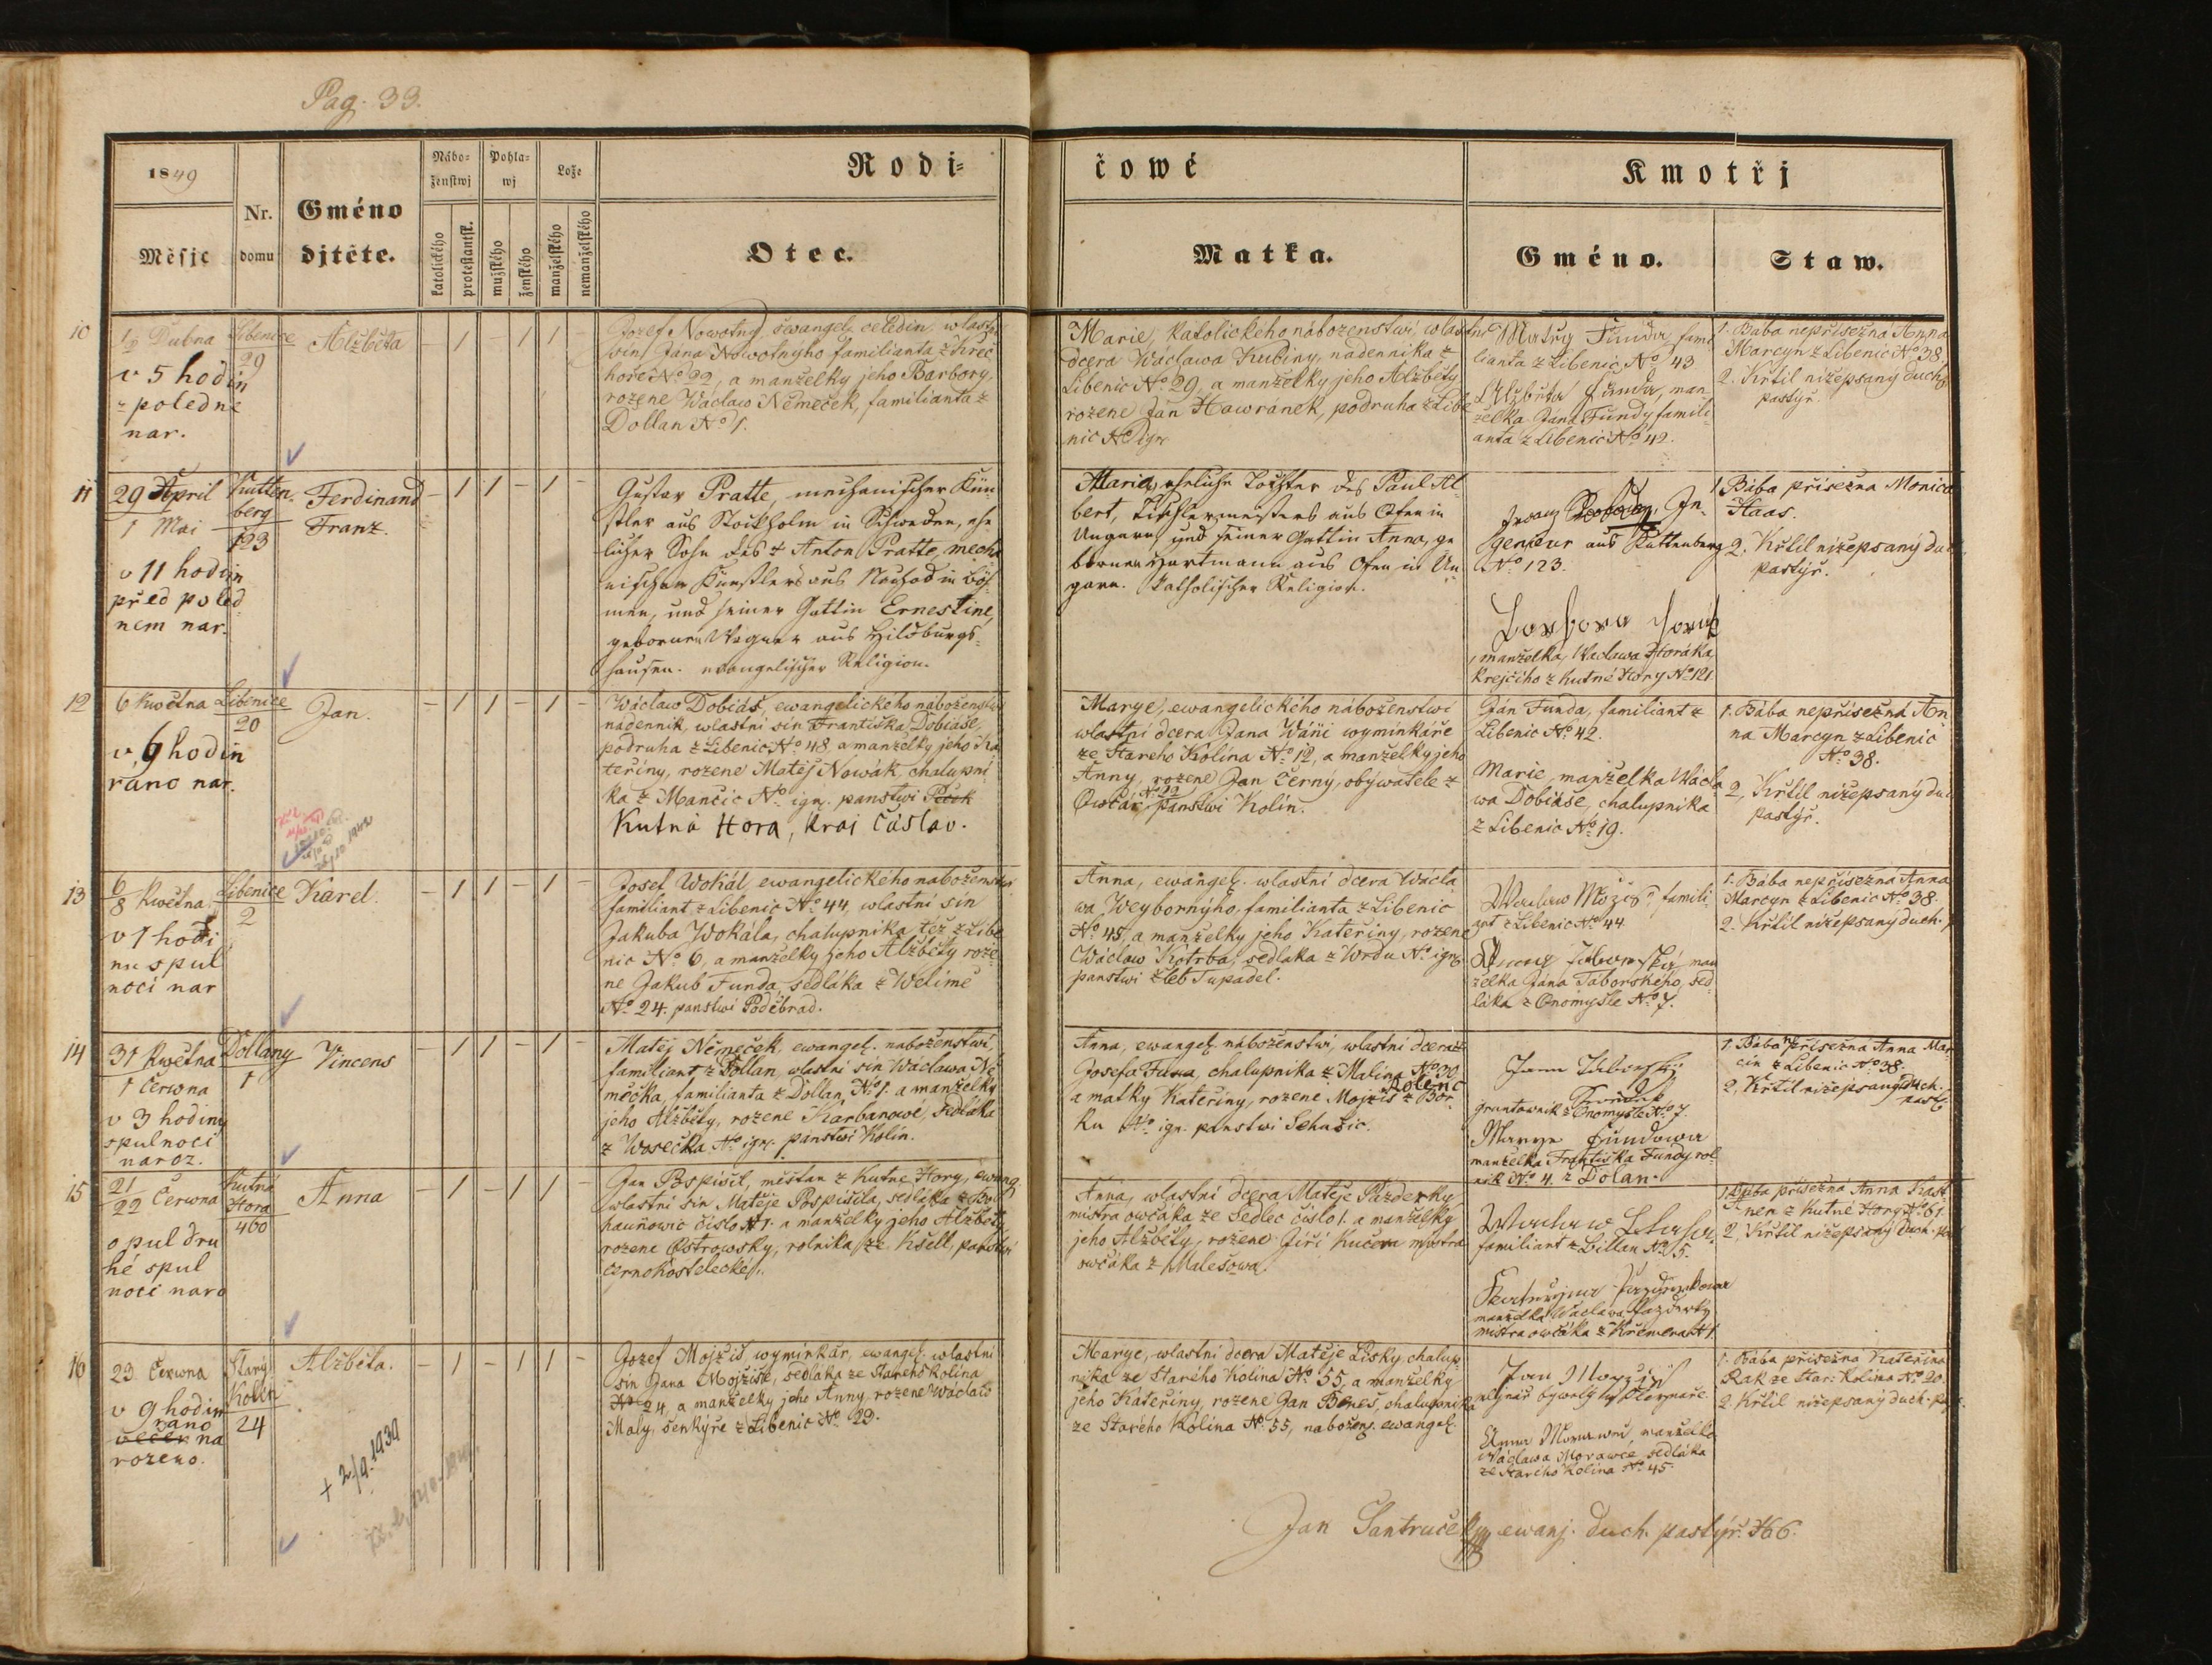 Pag. 33.
1849
Měsjc
Nr. domu
Gméno djtěte.
Nábo=ženstwj
katolického
protestantsk.
Pohla=wj
mužského
ženského
Lože
manželského
nemanželského
Rodi=
čowé
Otec.
Matka.
Kmotřj
Gméno.
Staw.
10
Dubna
v 5 hodin
z poledne
nar.
Libenice
29
Alžběta
– 1 – 1 1 –
Jozef Nowotný, ewangel. čeledin, wlastní
sin Jána Nowotnýho familianta z Křeč
hoře No 22, a manželky jeho Barbory,
rozené Wáclaw Němeček, familianta z
Dollan No 1.
Marie, katolickeho náboženstwí, wlastní
dcera Wácława Kubiny, nádenníka z
Libenic No 29, a manželky jeho Alžběty
rozené Jan Hawránek, podruha z Libe
nic No ign
Matěg Funda, fami
lianta z Libenic, No 43
Alžběta Funda, man
želka Jana Fundy famili
anta z Libenic No 42.
1. Bába nepřísežná Anna
Marcyn z Libenic No 38.
2. Křtil nížepsaný duch.
pastýř.
11
29 April
1 Mai
v 11 hodin
před poled
nem nar.
Kutten
berg
123
Ferdinand
Franz.
– 1 1 – 1 –
Gustav Pratte, mechanischer Kün
stler aus Stockholm in Schweden, ehe
licher Sohn des † Anton Pratte, mecha
nischen Künstlers aus Neuhof in Böh
men, und seiner Gattin Ernestine,
gebornen Wagner aus Hildburgs
hausen. evangelischer Religion.
Maria, eheliche Tochter des Paul Al
bert, Tischlermeisters aus Ofen in
Ungarn, und seiner Gattin Anna, ge
bornen Hartmann aus Ofen in Un
garn. Katholischer Religion.
Franz In
genieur aus Kuttenberg
No 123.
Barbora Horák
manželka Wáclawa Horáka
krejčího z Kutné Hory No 121
1 Bába přísežná Monica
Haas.
2. Křtil nížepsaný du
pastýř.
12
6 Května
v 6 hodin
ráno nar.
Libenice
20
Jan.
– 1 1 – 1 –
Wáclaw Dobiáš, ewangelického náboženstwí
nádenník, wlastní sin Františka Dobiáše,
podruha z Libenic No 48 a manželky jeho Ka
teřiny, rozené Matěj Nowák, chalupní
ka z Mančic No ign. panstwí Peček
Kutná Hora, kraj Čáslav.
Marye, ewangelického náboženstwí
wlastní dcera Jana Wáni wyminkáře
ze Starého Kolína No 12, a manželky jeho
Anny, rozené Jan Černý, obýwatele z
Owčár No 22 panstwi Kolín.
Ján Funda, familiant z
Libenic No 42.
Marie, manželka Wácla
wa Dobiáše, chalupníka
z Libenic No 19.
1. Bába nepřísežná An
na Marcyn z Libenic
No 38.
2, Křtil nížepsaný du
pastýř.
13
6
8 Května
v 1 hodi
nu s pul
noci nar
Libenice
2
Karel.
– 1 1 – 1 –
Josef Wokál, ewangelického náboženstwí
familiant z Libenic No 44, wlastní sin
Jakuba Wokála, chalupníka též z Libe
nic No 6, a manželky jeho Alžběty roze
né Jakub Funda, sedláka z Welimě
No 24. panstwí Poděbrad.
Anna, ewangel. wlastní dcera Wácla
wa Weyborného, familianta z Libenic
No 45, a manželky jeho Kateřiny, rozené
Wáclaw Kotrba, sedlaka z Wrdu No ign
panstwí Žleb Tupadel.
Waclaw famili
ant z Libenic No 44
man
želka Jána Táborského, sed
láka z Onomyšle No 7.
1. Bába nepřísežná Anna
Marcyn z Libenic No 38.
2. Křtil nížepsaný duch.
14
31 Května
1 Června
v 3 hodiny
s pulnoci
naroz.
Dollany
1
Vincens
– 1 1 – 1 –
Matěj Němeček, ewangel. náboženstwí,
familiant z Dollan, wlastní sin Wáclawa Ně
mečka, familianta z Dollan No 1. a manželky
jeho Alžběty, rozené Karbanowé, sedláka
z Wosečka No ign. panstwí Kolín.
Anna, ewangel. náboženstwí, wlastní dcera
Josefa chalupníka z Malína No 30
a matky Kateřiny, rozené Mojžiš z Bor
ku No ign. panstwí Sehušic.
gruntownik z Onomyšle No 7.
Marye Fundowa
manželka Františka Fundy rol
nik No 4. z Dolan.
1. Bába přísežná Anna Mar
cin z Libenic No 38.
2. Křtil nížepsaný duch.
past.
15
21
22 Června
o pul dru
hé s pul
noci naro
Kutná
Hora
460
Anna
– 1 – 1 1 –
Jan Pospíšil, měštan z Kutné Hory, ewang.
wlastní sin Matěje Pospíšila, sedláka z Bo
hauňowic číslo 1. a manželky jeho Alžběty
rozené Ostrowsky, rolníka ze Kšell, panstwí
černokostelecké.
Anna, wlastní dcera Matěje Pazderky
mistra owčáka ze Sedlec číslo 1. a manželky
jeho Alžběty, rozené Jiří Kučera mistra
owčáka z Malešowa.
Wáclaw
familiant z Billan No 5.
manželka Waclawa Pazderky
mistra owčáka z
1. Bába přísežná Anna Kast
nen z Kutné Hory No 61.
2, Křtil nížepsaný duch.
16
23. Června
v 9 hodin
ráno
večer na
rozeno.
Starý
Kolín
24
Alžběta.
– 1 – 1 1 –
+ 2/9. 1939
Jozef Mojžiš, wyminkář, ewangel. wlastní
sin Jana Mojžiše, sedláka ze Starého Kolína
No 24, a manželky jeho Anny, rozené Wáclaw
Maly, šenkýře z Libenic No 29.
Marye, wlastní dcera Matěje Lísky, chalup
níka ze Starého Kolína No 55, a manželky
jeho Kateřiny, rozené Jan Beneš, chalupníka
ze Starého Kolína No 55, nábožens. ewangel.
Jan Mojžiš
Anna manželka
Wáclawa Morawce sedláka
ze Starého Kolína No 45.
1. Bába přísežná Kateřina
Rak ze Star. Kolína No 20.
2. Křtil nížepsaný duch.
Jan Šantruček, ewanj. duch. pastýř.